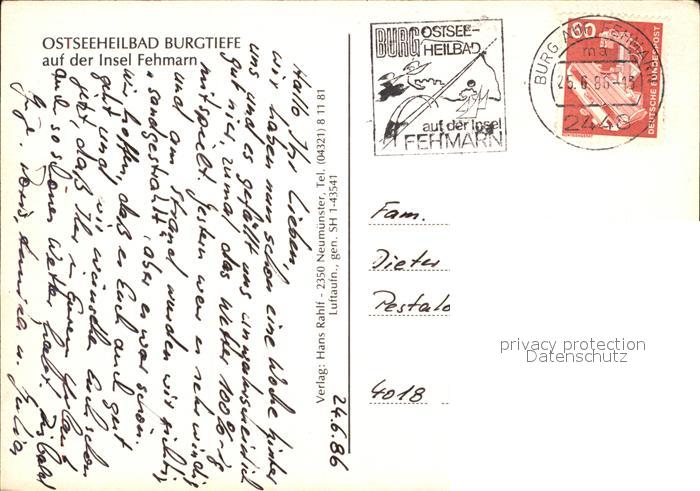 OSTSEEHEILBAD BURGTIEFE
auf der Insel Fehmarn
24.6.86
Hallo Ihr Lieben,
wir haben nun schon eine Woche hinter
uns und es gefällt uns unwahrscheinlich
gut hier, zumal das Wetter 100%-ig
mitspielt. Gestern war es sehr windig
und am Strand wurden wir richtig
"sandgestrahlt", aber es war schön.
Wir hoffen, daß es Euch auch gut
geht und wir wünschen Euch schon
jetzt, daß Ihr in Eurem Urlaub
auch so schönes Wetter habt. Bis bald
Verlag: Hans Rahlf - 2350 Neumünster, Tel. (04321) 8 11 81
Luftaufn., gen. SH 1-43541
BURG OSTSEE-
HEILBAD
auf der Insel
FEHMARN
BURG AUF FEHMARN
ma
25.6.86-13
2448
60
DEUTSCHE BUNDESPOST
Fam.
Dieter
Pestalo
4018
privacy protection
Datenschutz